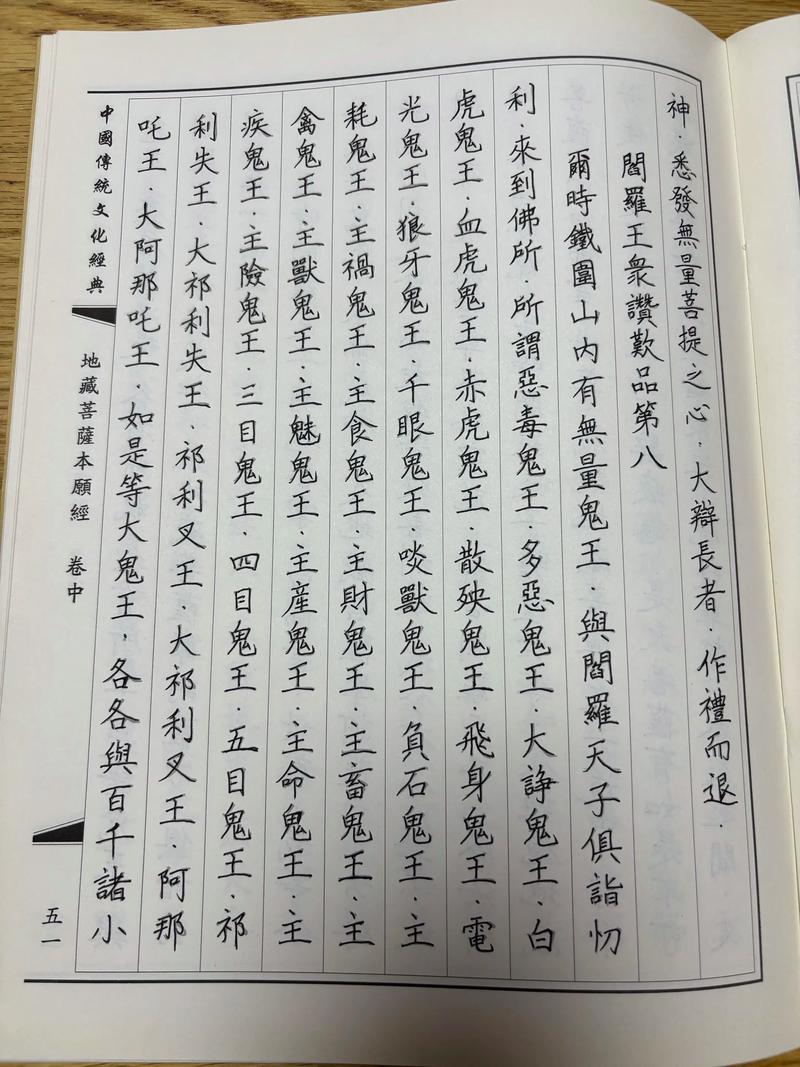 神．悉發無量菩提之心．大辯長者．作禮而退．
閻羅王衆讚歎品第八
爾時鐵圍山內有無量鬼王．與閻羅天子俱詣忉
利．來到佛所．所謂惡毒鬼王．多惡鬼王．大諍鬼王．白
虎鬼王．血虎鬼王．赤虎鬼王．散殃鬼王．飛身鬼王．電
光鬼王．狼牙鬼王．千眼鬼王．啖獸鬼王．負石鬼王．主
耗鬼王．主禍鬼王．主食鬼王．主財鬼王．主畜鬼王．主
禽鬼王．主獸鬼王．主魅鬼王．主産鬼王．主命鬼王．主
疾鬼王．主險鬼王．三目鬼王．四目鬼王．五目鬼王．祁
利失王．大祁利失王．祁利叉王．大祁利叉王．阿那
吒王．大阿那吒王．如是等大鬼王，各各與百千諸小
中國傳統文化經典
地藏菩薩本願經 卷中
五一